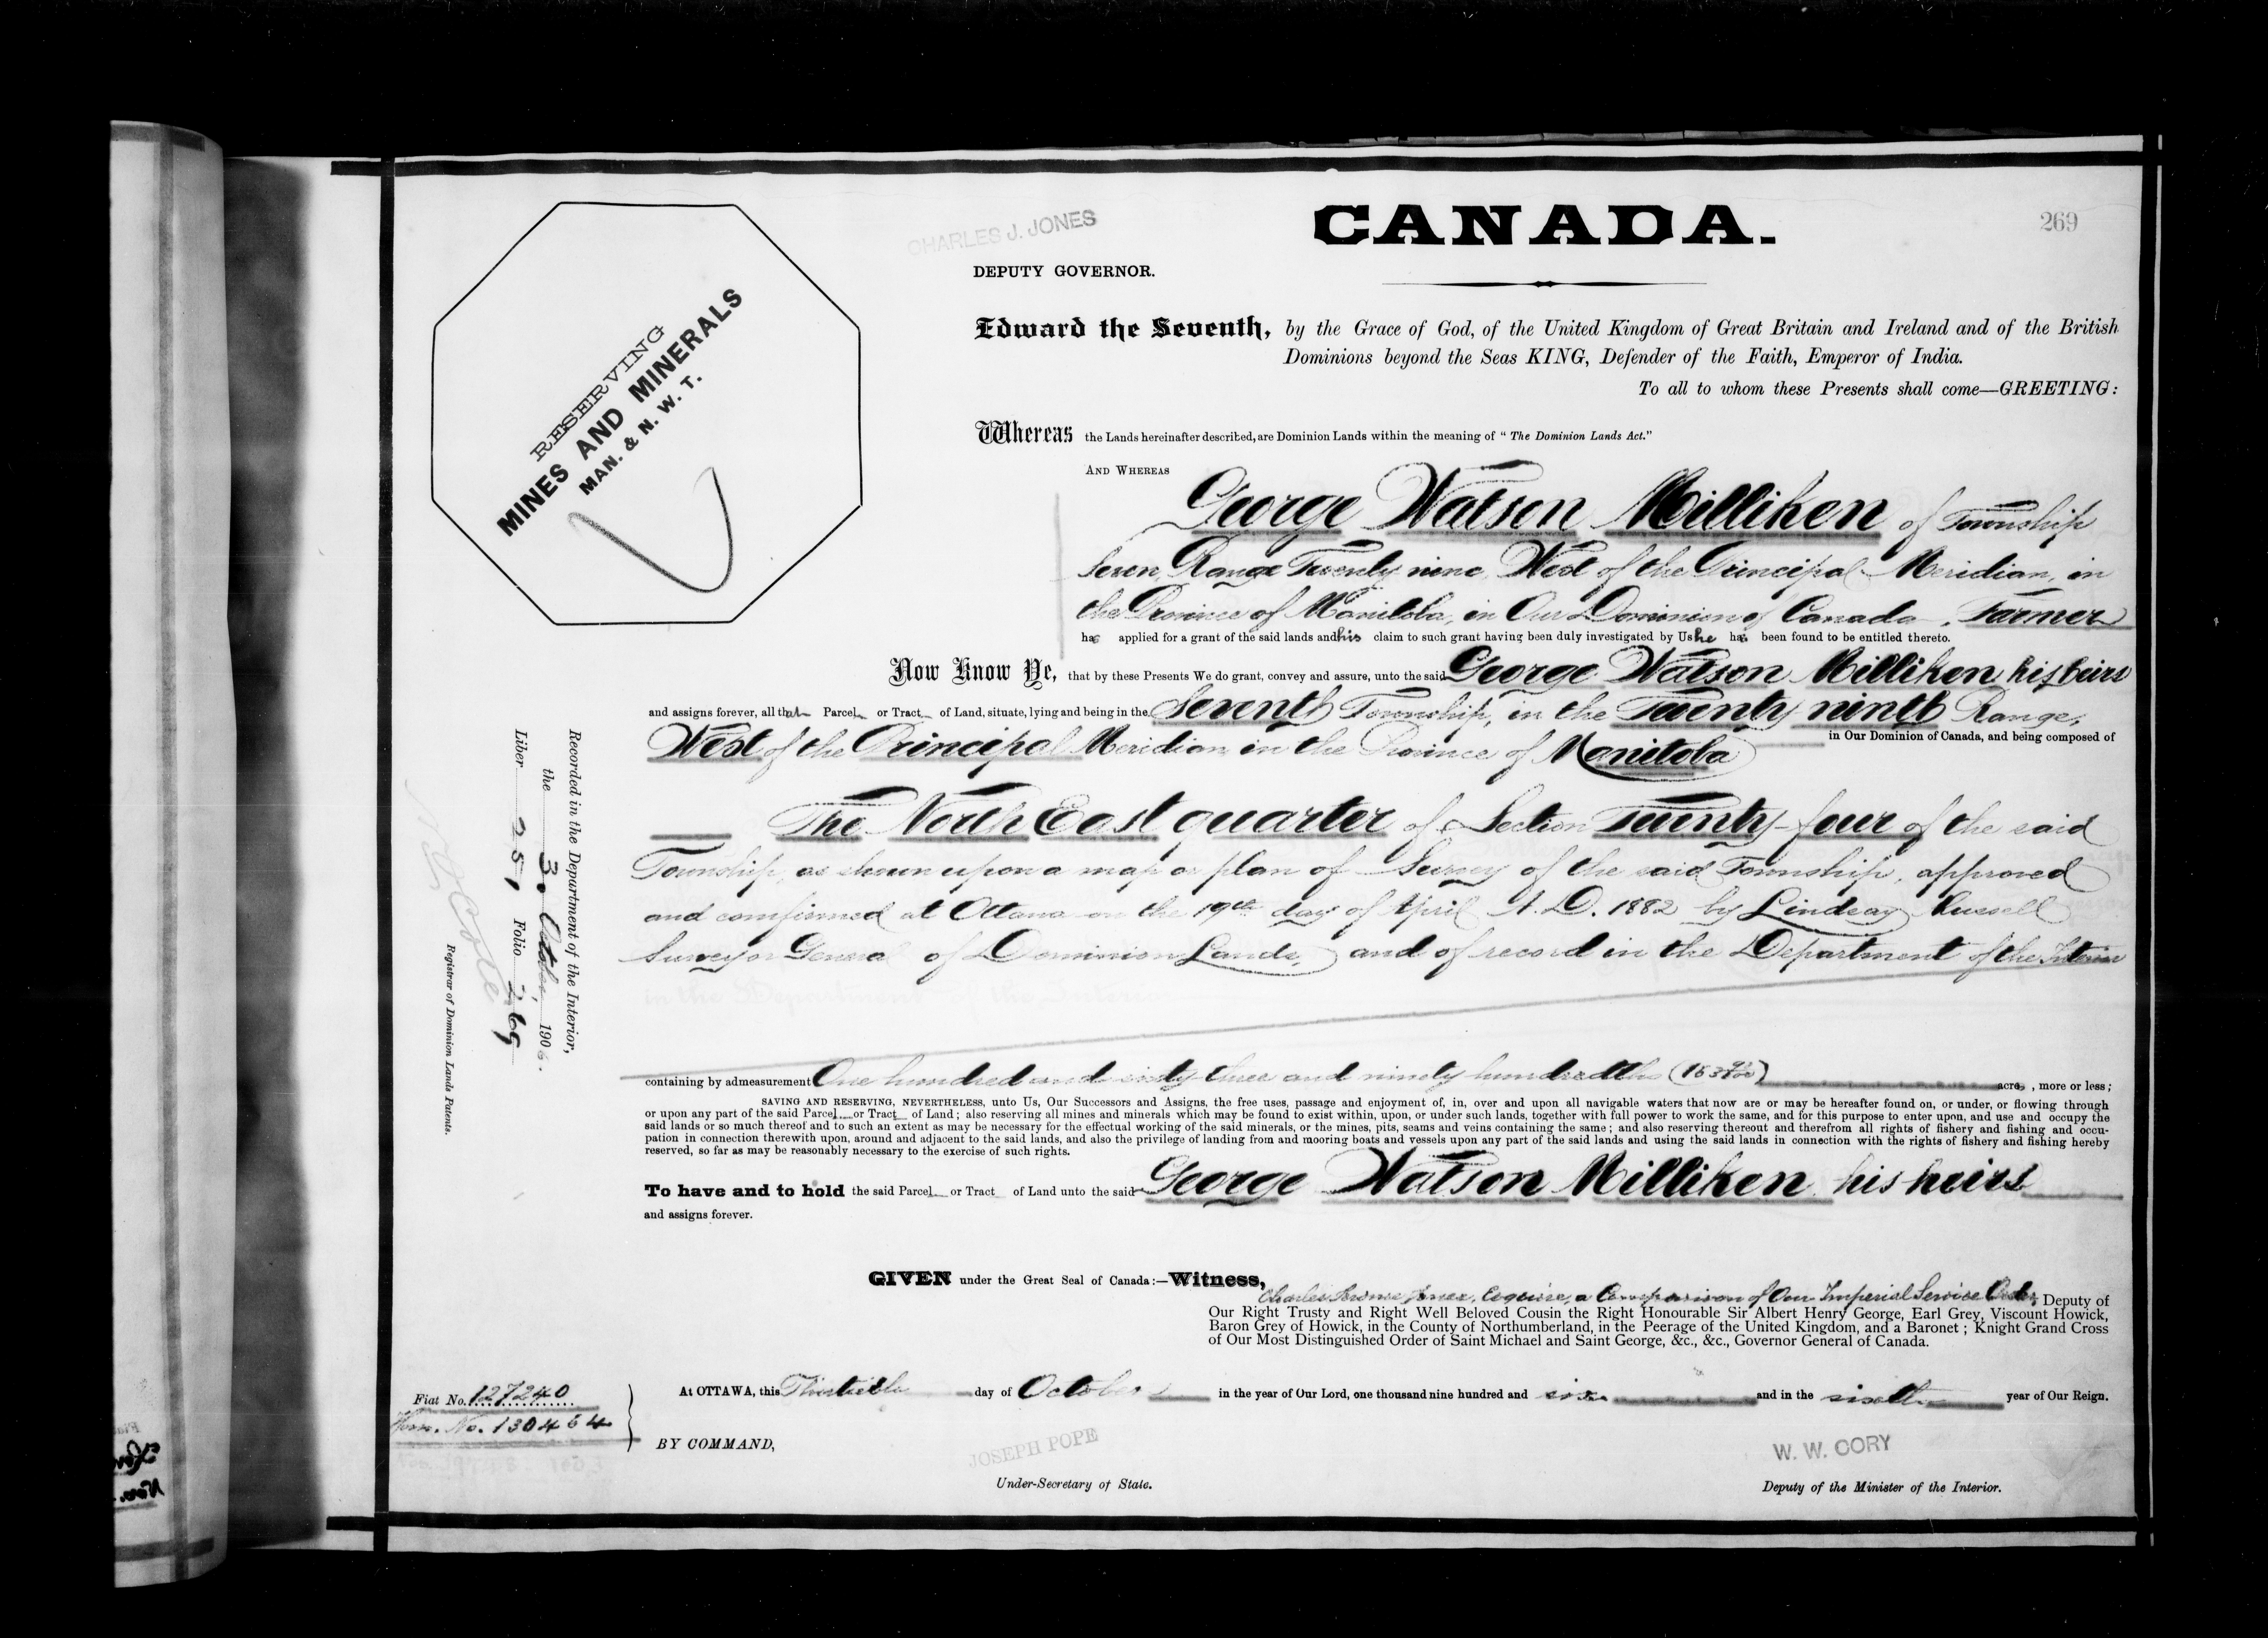 CHARLES J. JONES
CANADA.
269
DEPUTY GOVERNOR.
RESERVING
MINES AND MINERALS
MAN. & N. W. T.
Edward the Seventh, by the Grace of God, of the United Kingdom of Great Britain and Ireland and of the British
Dominions beyond the Seas KING, Defender of the Faith, Emperor of India.
To all to whom these Presents shall come—GREETING:
Whereas the Lands hereinafter described, are Dominion Lands within the meaning of "The Dominion Lands Act."
AND WHEREAS
George Watson Milliken of Township
Seven, Range Twenty nine, West of the Principal Meridian, in
the Province of Manitoba, in Our Dominion of Canada, Farmer
has applied for a grant of the said lands and his claim to such grant having been duly investigated by Us he has been found to be entitled thereto.
Now Know Ye, that by these Presents We do grant, convey and assure, unto the said George Watson Milliken his heirs
and assigns forever, all that Parcel or Tract of Land, situate, lying and being in the Seventh Township, in the Twenty ninth Range,
West of the Principal Meridian in the Province of Manitoba in Our Dominion of Canada, and being composed of
The North East quarter of Section Twenty-four of the said
Township, as shown upon a map or plan of Survey of the said Township, approved
and confirmed at Ottawa on the 19th day of April A.D. 1882 by Lindsay Russell
Surveyor General of Dominion Lands, and of record in the Department of the Interior
containing by admeasurement One hundred and sixty three and ninety hundredths (163 90/100) acres, more or less;
SAVING AND RESERVING, NEVERTHELESS, unto Us, Our Successors and Assigns, the free uses, passage and enjoyment of, in, over and upon all navigable waters that now are or may be hereafter found on, or under, or flowing through
or upon any part of the said Parcel or Tract of Land; also reserving all mines and minerals which may be found to exist within, upon, or under such lands, together with full power to work the same, and for this purpose to enter upon, and use and occupy the
said lands or so much thereof and to such an extent as may be necessary for the effectual working of the said minerals, or the mines, pits, seams and veins containing the same; and also reserving thereout and therefrom all rights of fishery and fishing and occu-
pation in connection therewith upon, around and adjacent to the said lands, and also the privilege of landing from and mooring boats and vessels upon any part of the said lands and using the said lands in connection with the rights of fishery and fishing hereby
reserved, so far as may be reasonably necessary to the exercise of such rights.
To have and to hold the said Parcel or Tract of Land unto the said George Watson Milliken his heirs
and assigns forever.
GIVEN under the Great Seal of Canada:—Witness,
Charles Jerome Jones, Esquire, a Companion of Our Imperial Service Order, Deputy of
Our Right Trusty and Right Well Beloved Cousin the Right Honourable Sir Albert Henry George, Earl Grey, Viscount Howick,
Baron Grey of Howick, in the County of Northumberland, in the Peerage of the United Kingdom, and a Baronet; Knight Grand Cross
of Our Most Distinguished Order of Saint Michael and Saint George, &c., &c., Governor General of Canada.
At OTTAWA, this Thirtieth day of October in the year of Our Lord, one thousand nine hundred and six and in the sixth year of Our Reign.
BY COMMAND,
JOSEPH POPE
Under-Secretary of State.
W. W. CORY
Deputy of the Minister of the Interior.
Fiat No. 127240
No. 130464
Recorded in the Department of the Interior,
the 30 October, 1906.
Liber 251 Folio 269
N. O. Coté
Registrar of Dominion Lands Patents.